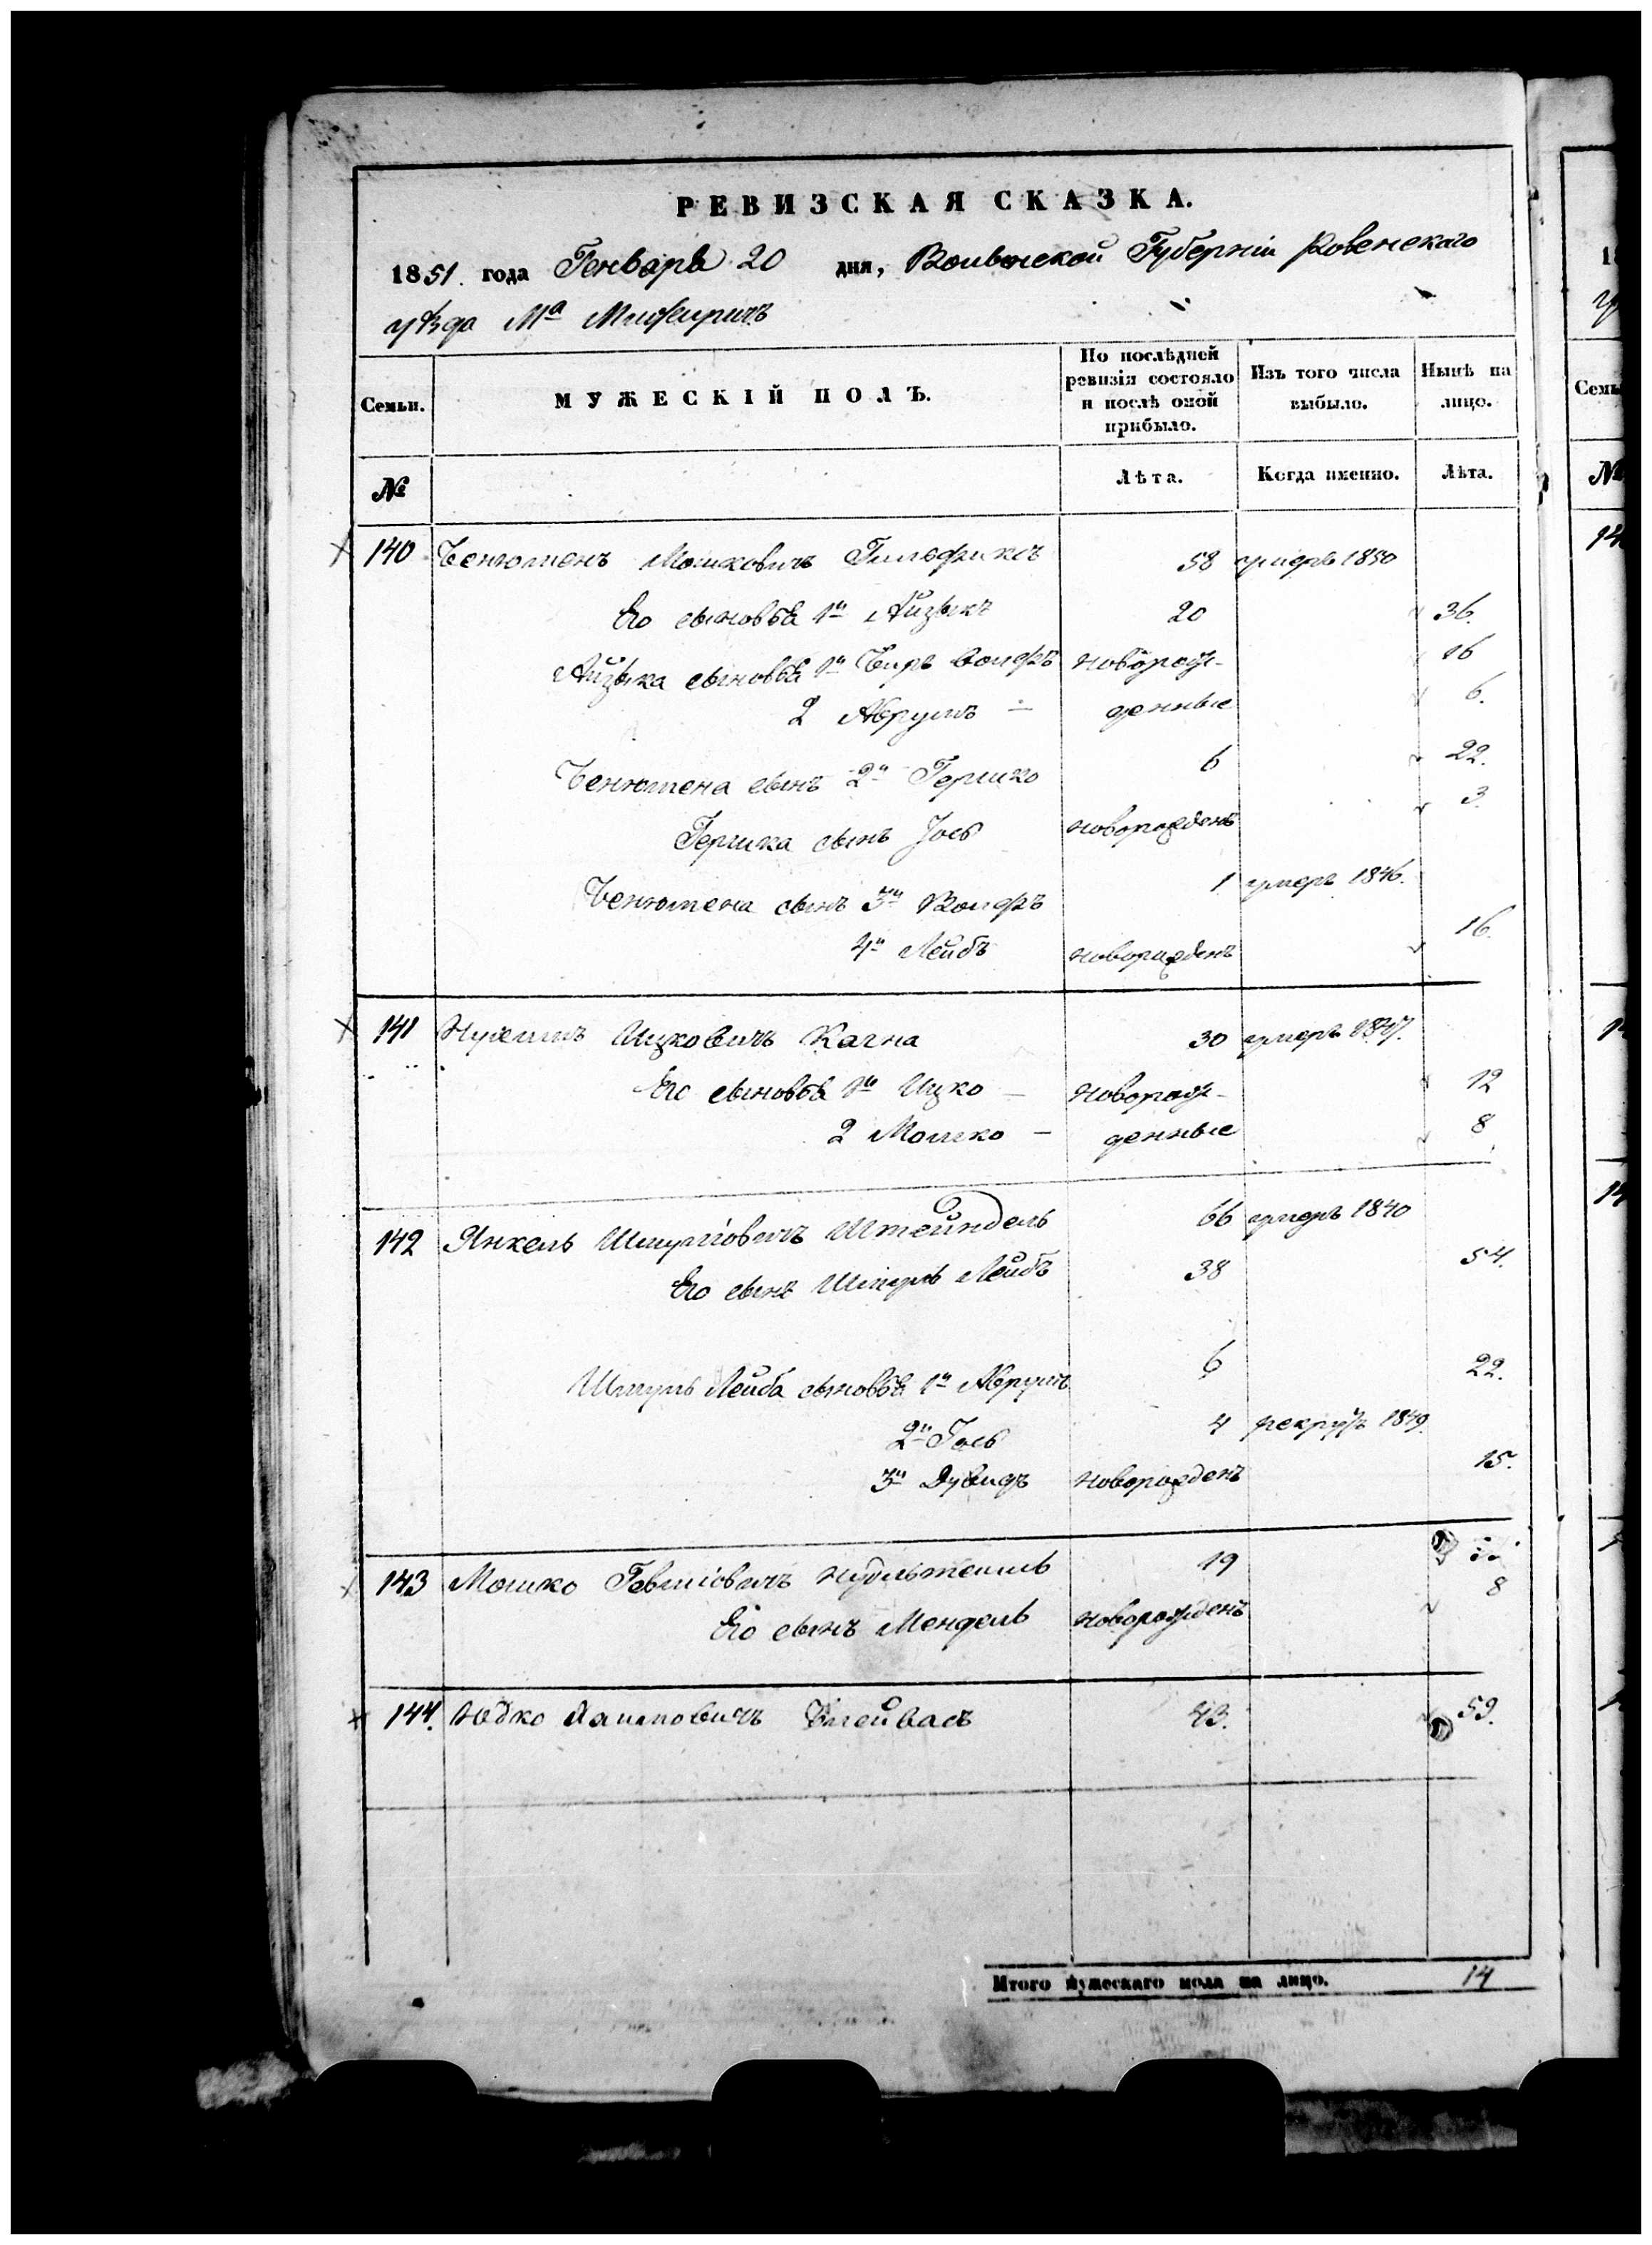 РЕВИЗСКАЯ СКАЗКА.
1851. года Генваря 20 дня, Волынской Губерніи Ровенскаго
уѣзда Ма Межиричъ
Семьи. МУЖЕСКІЙ ПОЛЪ. По послѣдней ревизіи состояло и послѣ оной прибыло. Изъ того числа выбыло. Нынѣ на лицо.
№ Лѣта. Когда именно. Лѣта.
140 Бенюменъ Мошковичъ 58 умеръ 1850
Его сыновья 1й Айзыкъ 20 36.
Айзыка сыновья 1й Беръ Волфъ новорож- 16
2 Аврумъ — денные 6.
Бенюмена сынъ 2й Гершко 6 22.
Гершка сынъ Іось новорожденъ 3.
Бенюмена сынъ 3й Волфъ 1 умеръ 1846.
4й Лейбъ новорожденъ 16.
141 Нухимъ Ицковичъ 30 умеръ 1847.
Его сыновья 1й Ицко — новорож- 12
2 Мошко — денные 8
142 Янкель Шмулiовичъ Штейндель 66 умеръ 1840
Его сынъ Шмуль Лейбъ 38 54.
Шмуль Лейба сыновья 1й Аврумъ 6 22.
2й Іось 4 рекрутъ 1849.
3й Дувидъ новорожденъ 15.
143 Мошко 19
Его сынъ Мендель новорожденъ 8
144. Юдко 43. 59.
Итого мужескаго пола на лицо. 14